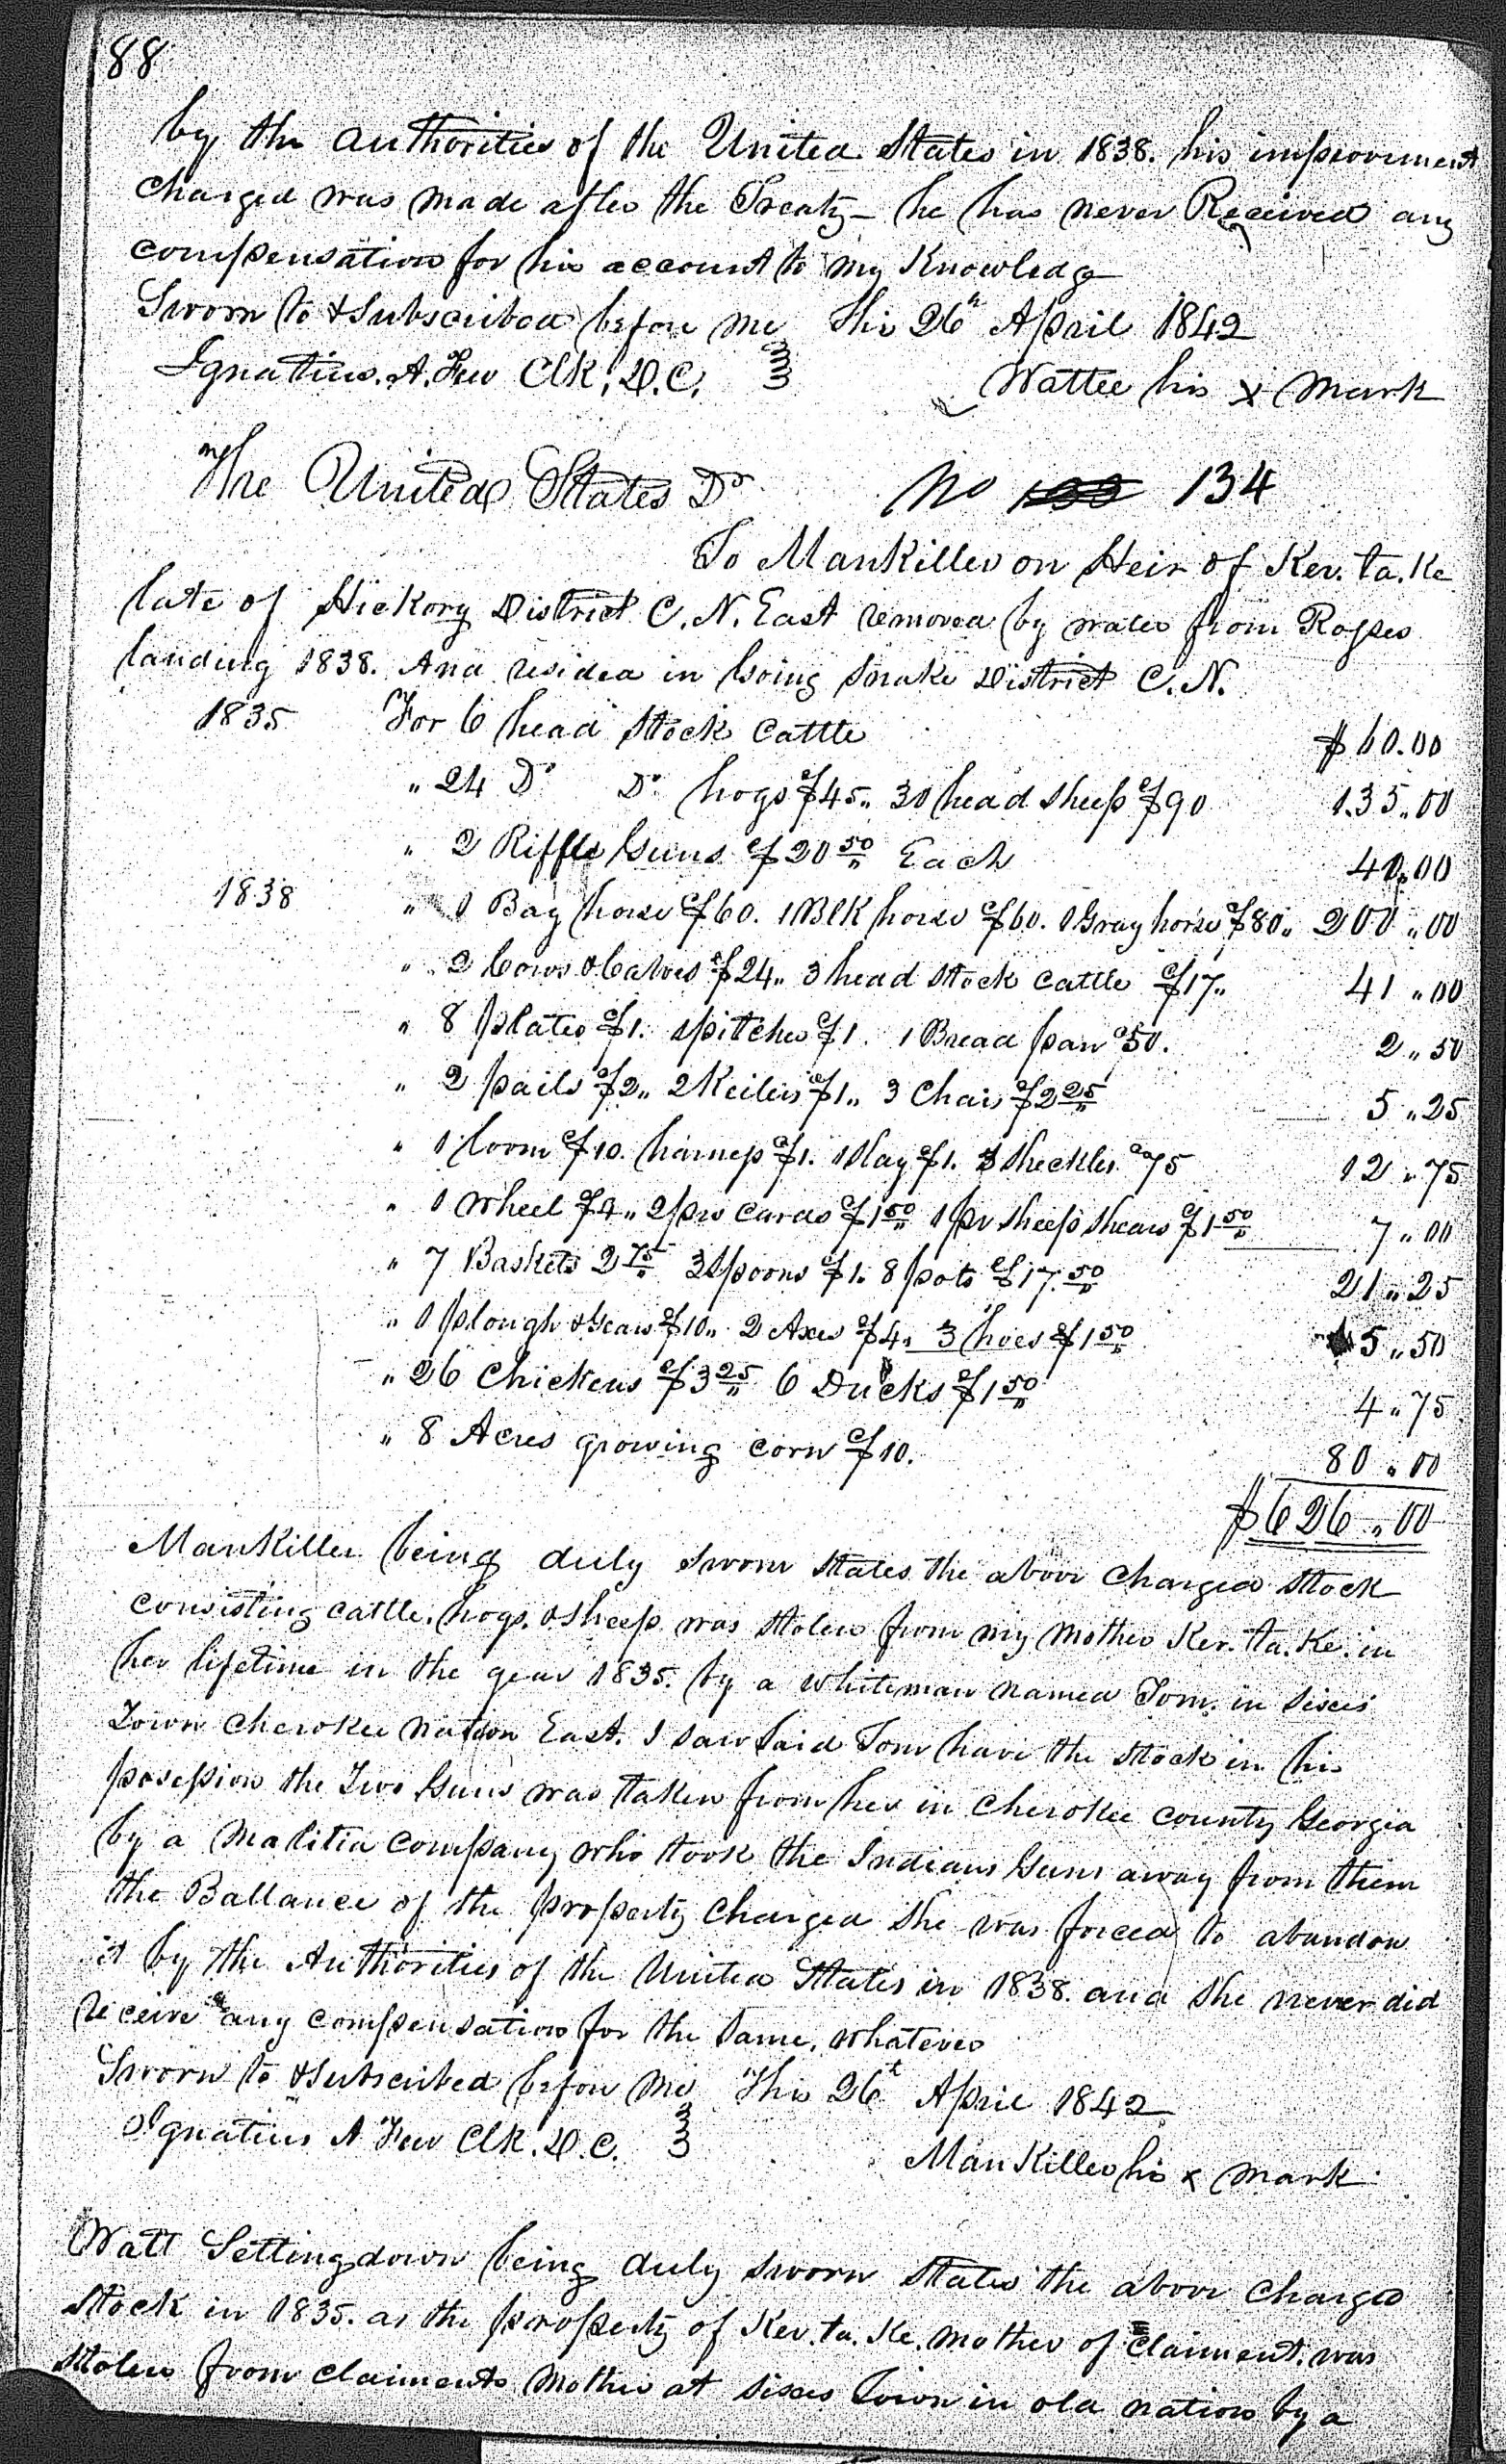 88
by the authorities of the United States in 1838. his improvement
Charged was made after the Treaty - he has never Received any
compensation for his account to my Knowledge
Sworn to & Subscribed before me This 26th April 1842
Ignatius. A. Few Clk. D.C.
Wattee his x mark
The United States Dr No 134
To Mankiller on Heir of Ker.ta.Ke
late of Hickory District C.N. East removed by water from Rosses
landing 1838. And resided in Going Snake District C.N.
1835 For 6 head Stock Cattle $60.00
" 24 Do Do hogs $45" 30 head sheep $90 135"00
" 2 Riffle Guns $20 50 Each 40.00
1838 " 1 Bay horse $60. 1 Blk horse $60. 1 Gray horse $80" 200"00
" 2 Cows & Calves $24" 3 head stock cattle $17" 41"00
" 8 plates $1. 1 pitcher $1. 1 Bread pan 50. 2"50
" 2 pails $2" 2 Keilers $1" 3 Chais $2 25 5"25
" 1 loom $10. harness $1. 1 Slay $1. 3 Sheckles 75 12"75
" 1 Wheel $4" 2 prs cards $1 50 1 pr sheep shears $1 50 7"00
" 7 Baskets 2 75 3 Spoons $1. 8 pots $17.50 21"25
" 1 plough & Gears $10" 2 Axes $4" 3 hoes $1 50 5"50
" 26 Chickens $3 25 6 Ducks $1 50 4"75
" 8 Acres growing corn $10. 80"00
$626"00
Mankiller being duly sworn states the above charged stock
consisting cattle. hogs. & sheep was stolen from my mother Ker.ta.Ke. in
her lifetime in the year 1835. by a whiteman named Tom. in Sixes
Town Cherokee Nation East. I saw Said Tom have the stock in his
posession the Two Guns was taken from her in Cherokee county Georgia
by a Malitia company who took the Indians Guns away from them
the Ballance of the property charged she was forced to abandon
it by the Authorities of the United States in 1838. and she never did
receive any compensation for the same. whatever
Sworn to & Subscribed before me This 26t April 1842
Ignatius A Few Clk. D.C.
Mankiller his x mark
Watt Settingdown being duly sworn states the above charged
Stock in 1835. as the property of Ker.ta.Ke. mother of Claiment. was
stolen from claiments Mother at Sixes Town in old nation by a